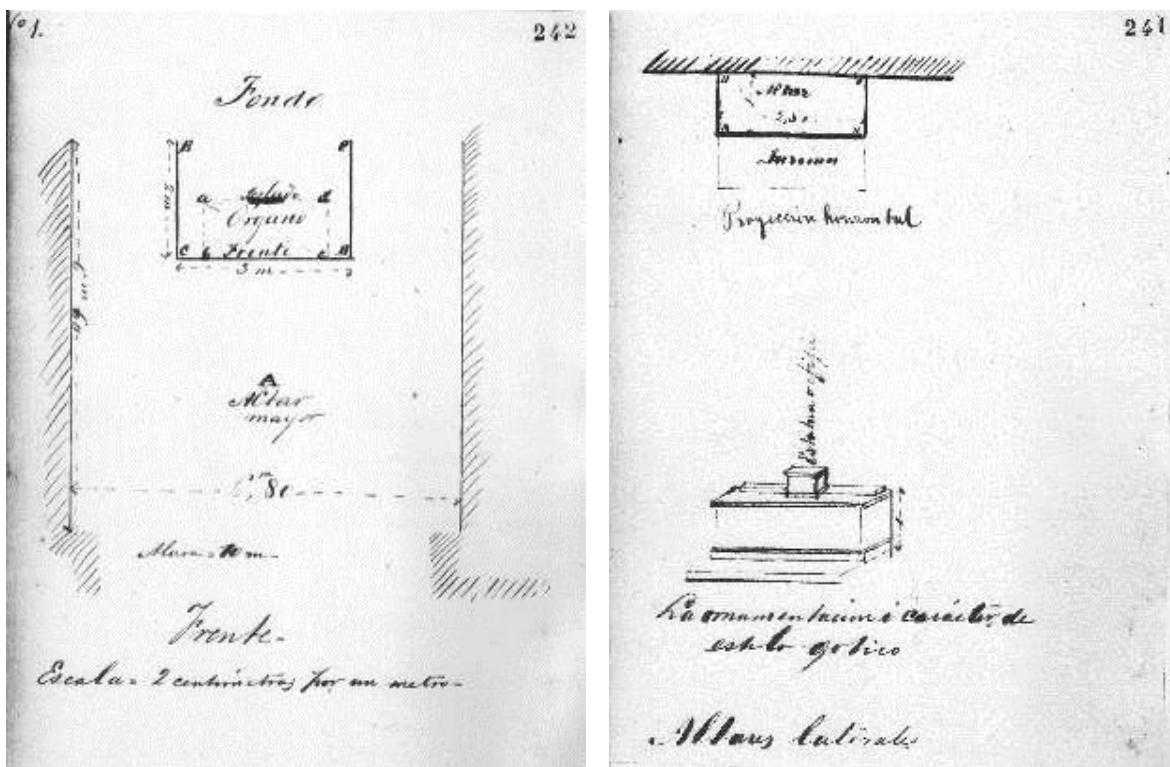 242
Fondo
B
P
2 m
a
d
Organo
C b Frente c
3 m
A
Altar
mayor
6,m80
Altura = 10 m
Frente-
Escala = 2 centímetros por un metro-
241
Altar
2,80
Proyección horizontal
La ornamentacion i carácter de
estilo gotico
Altares laterales